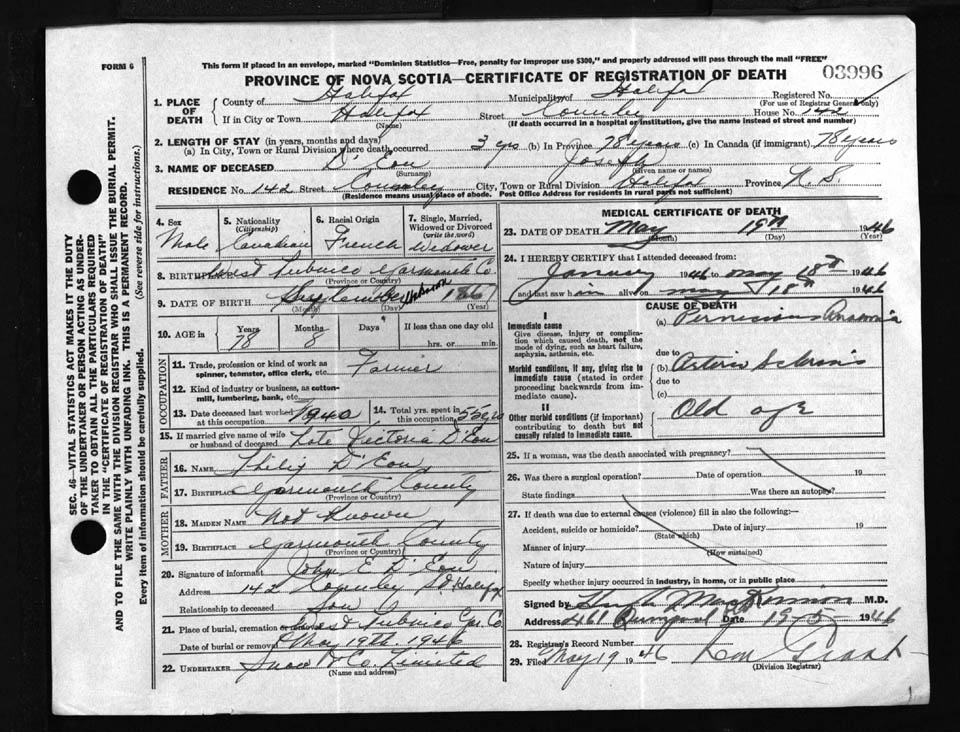 FORM 6
This form if placed in an envelope, marked "Dominion Statistics—Free, penalty for improper use $300," and properly addressed will pass through the mail "FREE"
PROVINCE OF NOVA SCOTIA—CERTIFICATE OF REGISTRATION OF DEATH
03996
1. PLACE OF DEATH
County of Halifax Municipality of Halifax Registered No.
(For use of Registrar General only)
If in City or Town Halifax Street House No. 142
(Name) (If death occurred in a hospital or institution, give the name instead of street and number)
2. LENGTH OF STAY (in years, months and days)
(a) In City, Town or Rural Division where death occurred 3 yrs (b) In Province 78 years (c) In Canada (if immigrant) 78 years
3. NAME OF DECEASED D'Eon Joseph
(Surname) (Given name or names)
RESIDENCE No. 142 Street City, Town or Rural Division Halifax Province N.S.
(Residence means usual place of abode. Post Office Address for residents in rural parts not sufficient)
4. Sex
Male
5. Nationality
(Citizenship)
Canadian
6. Racial Origin
French
7. Single, Married, Widowed or Divorced
(write the word)
Widower
8. BIRTHPLACE West Pubnico Yarmouth Co.
(Province or Country)
9. DATE OF BIRTH September Unknown 1867
(Month) (Day) (Year)
10. AGE in
Years Months Days If less than one day old
78 8 hrs. or min.
OCCUPATION
11. Trade, profession or kind of work as spinner, teamster, office clerk, etc. Farmer
12. Kind of industry or business, as cotton-mill, lumbering, bank, etc.
13. Date deceased last worked at this occupation 1940
14. Total yrs. spent in this occupation 55 yrs
15. If married give name of wife or husband of deceased Late Victoria D'Eon
FATHER
16. NAME Philip D'Eon
17. BIRTHPLACE Yarmouth County
(Province or Country)
MOTHER
18. MAIDEN NAME Not Known
19. BIRTHPLACE Yarmouth County
(Province or Country)
20. Signature of informant John E D'Eon
Address 142 St Halifax
Relationship to deceased Son
21. Place of burial, cremation or removal West Pubnico Yar. Co.
Date of burial or removal May 19th 1946
22. UNDERTAKER Snow & Co. Limited
(Name and address)
MEDICAL CERTIFICATE OF DEATH
23. DATE OF DEATH May 19th 1946
(Month) (Day) (Year)
24. I HEREBY CERTIFY that I attended deceased from:
January 1946 to May 18th 1946
and last saw him alive on May 18th 1946
CAUSE OF DEATH
I
Immediate cause
Give disease, injury or complication which caused death, not the mode of dying, such as heart failure, asphyxia, asthenia, etc.
(a) Pernicious Anaemia
due to
Morbid conditions, if any, giving rise to immediate cause (stated in order proceeding backwards from immediate cause).
(b) Arterio Sclerosis
due to
(c)
II
Other morbid conditions (if important) contributing to death but not causally related to immediate cause.
Old age
25. If a woman, was the death associated with pregnancy?
26. Was there a surgical operation? Date of operation 19
State findings Was there an autopsy?
27. If death was due to external causes (violence) fill in also the following:—
Accident, suicide or homicide? Date of injury 19
(State which)
Manner of injury
(How sustained)
Nature of injury
Specify whether injury occurred in industry, in home, or in public place
Signed by Hugh MacKinnon M.D.
Address 461 Quinpool Rd Date 19-5- 1946
28. Registrar's Record Number
29. Filed May 19 1946
(Division Registrar)
SEC. 46—VITAL STATISTICS ACT MAKES IT THE DUTY
OF THE UNDERTAKER OR PERSON ACTING AS UNDER-
TAKER TO OBTAIN ALL THE PARTICULARS REQUIRED
IN THE "CERTIFICATE OF REGISTRATION OF DEATH"
AND TO FILE THE SAME WITH THE DIVISION REGISTRAR WHO SHALL ISSUE THE BURIAL PERMIT.
WRITE PLAINLY WITH UNFADING INK. THIS IS A PERMANENT RECORD.
Every item of information should be carefully supplied. (See reverse side for instructions.)